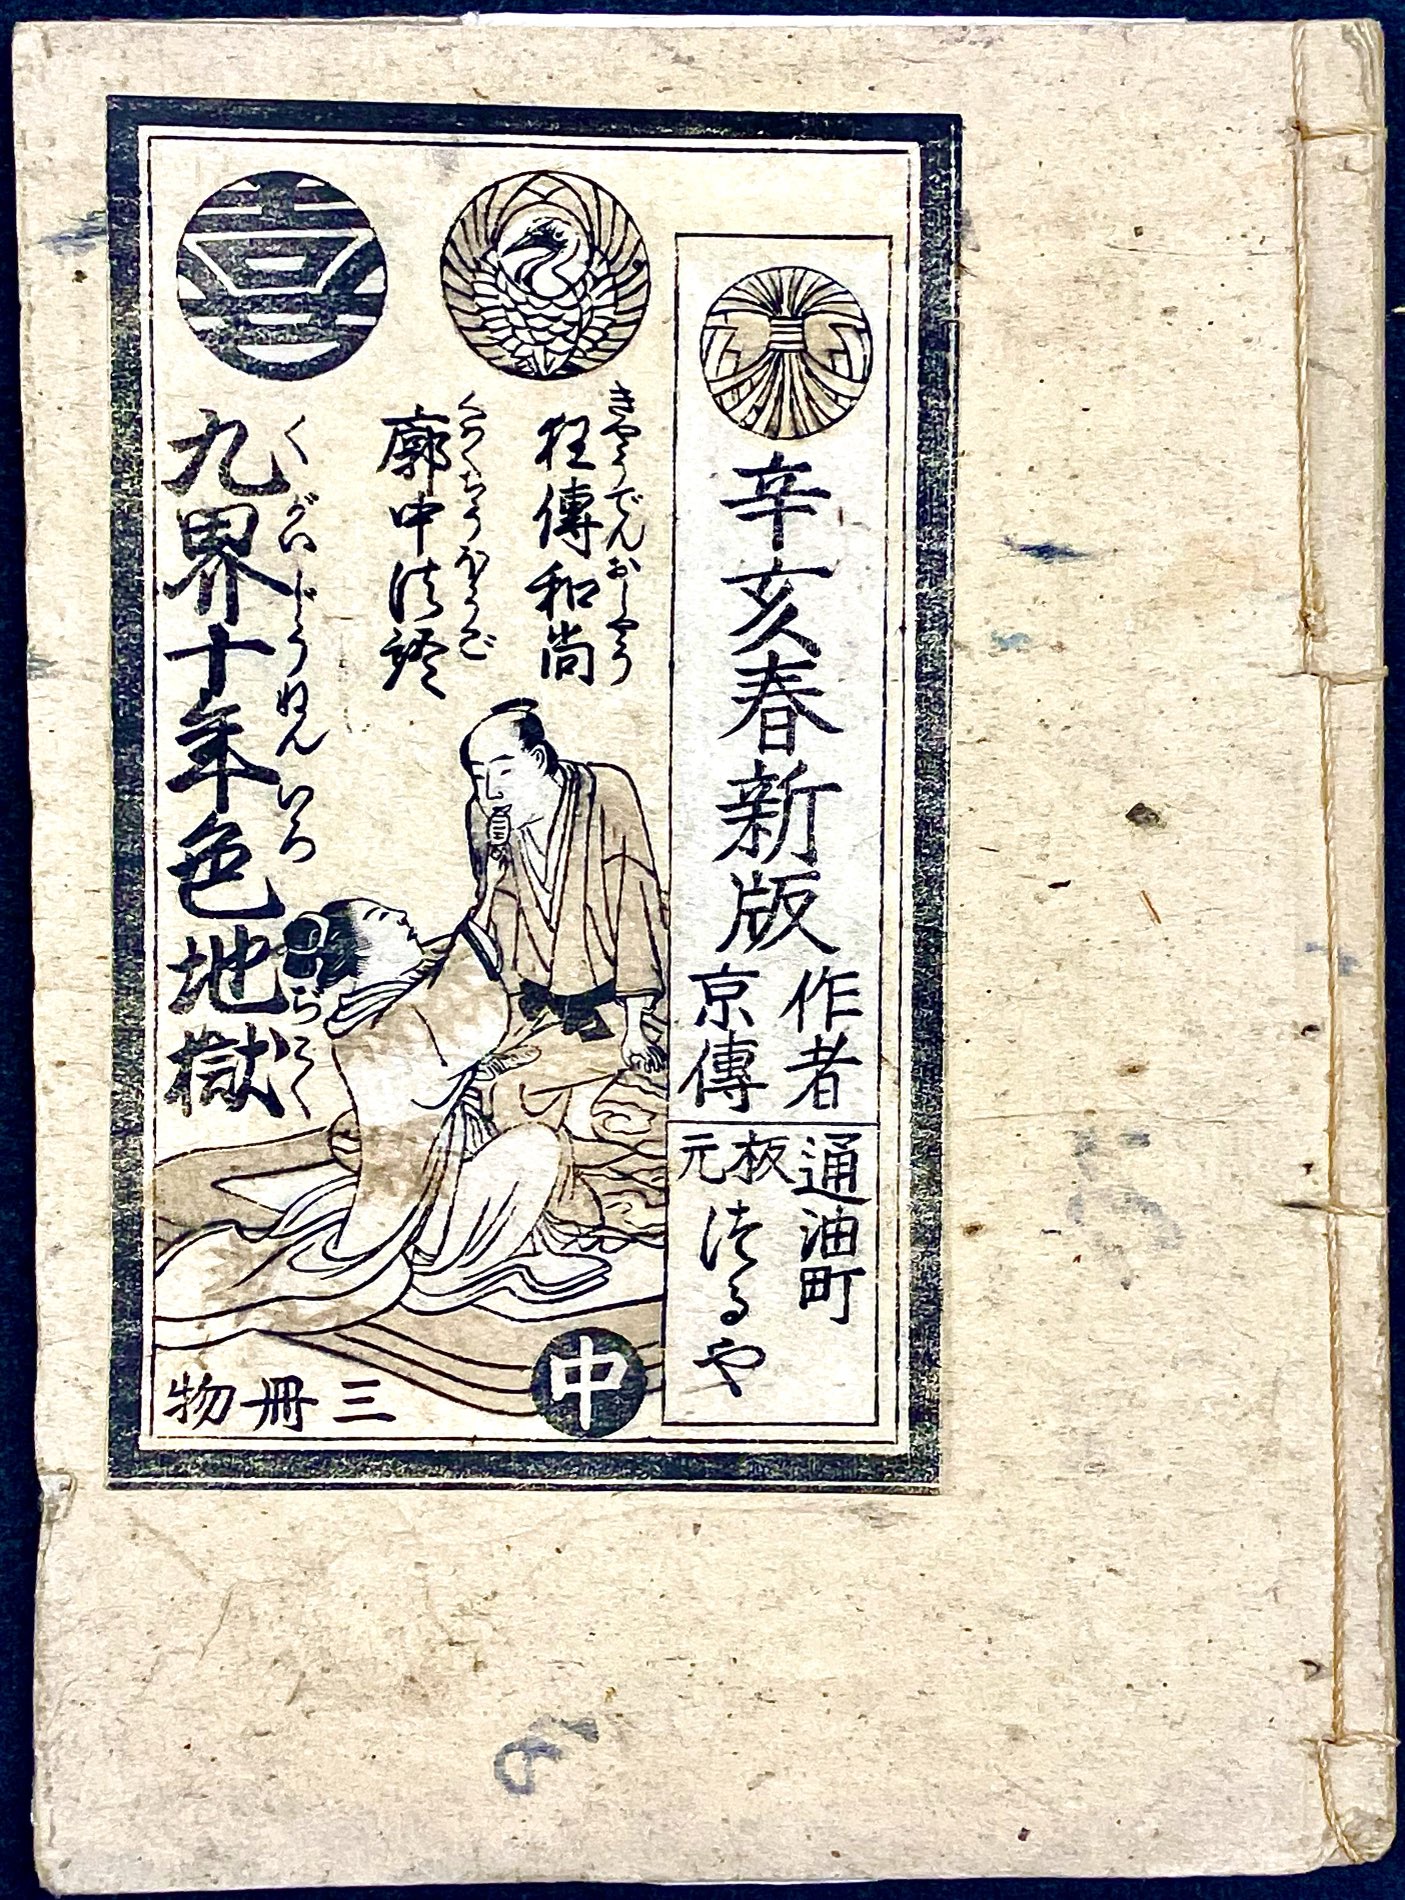 辛亥春新版
作者
京傳
通油町
板元
つるや
きやうでんおしやう
狂傳和尚
くるわちうほうご
廓中法語
くがいじうねんいろぢごく
九界十年色地獄
中
三冊物